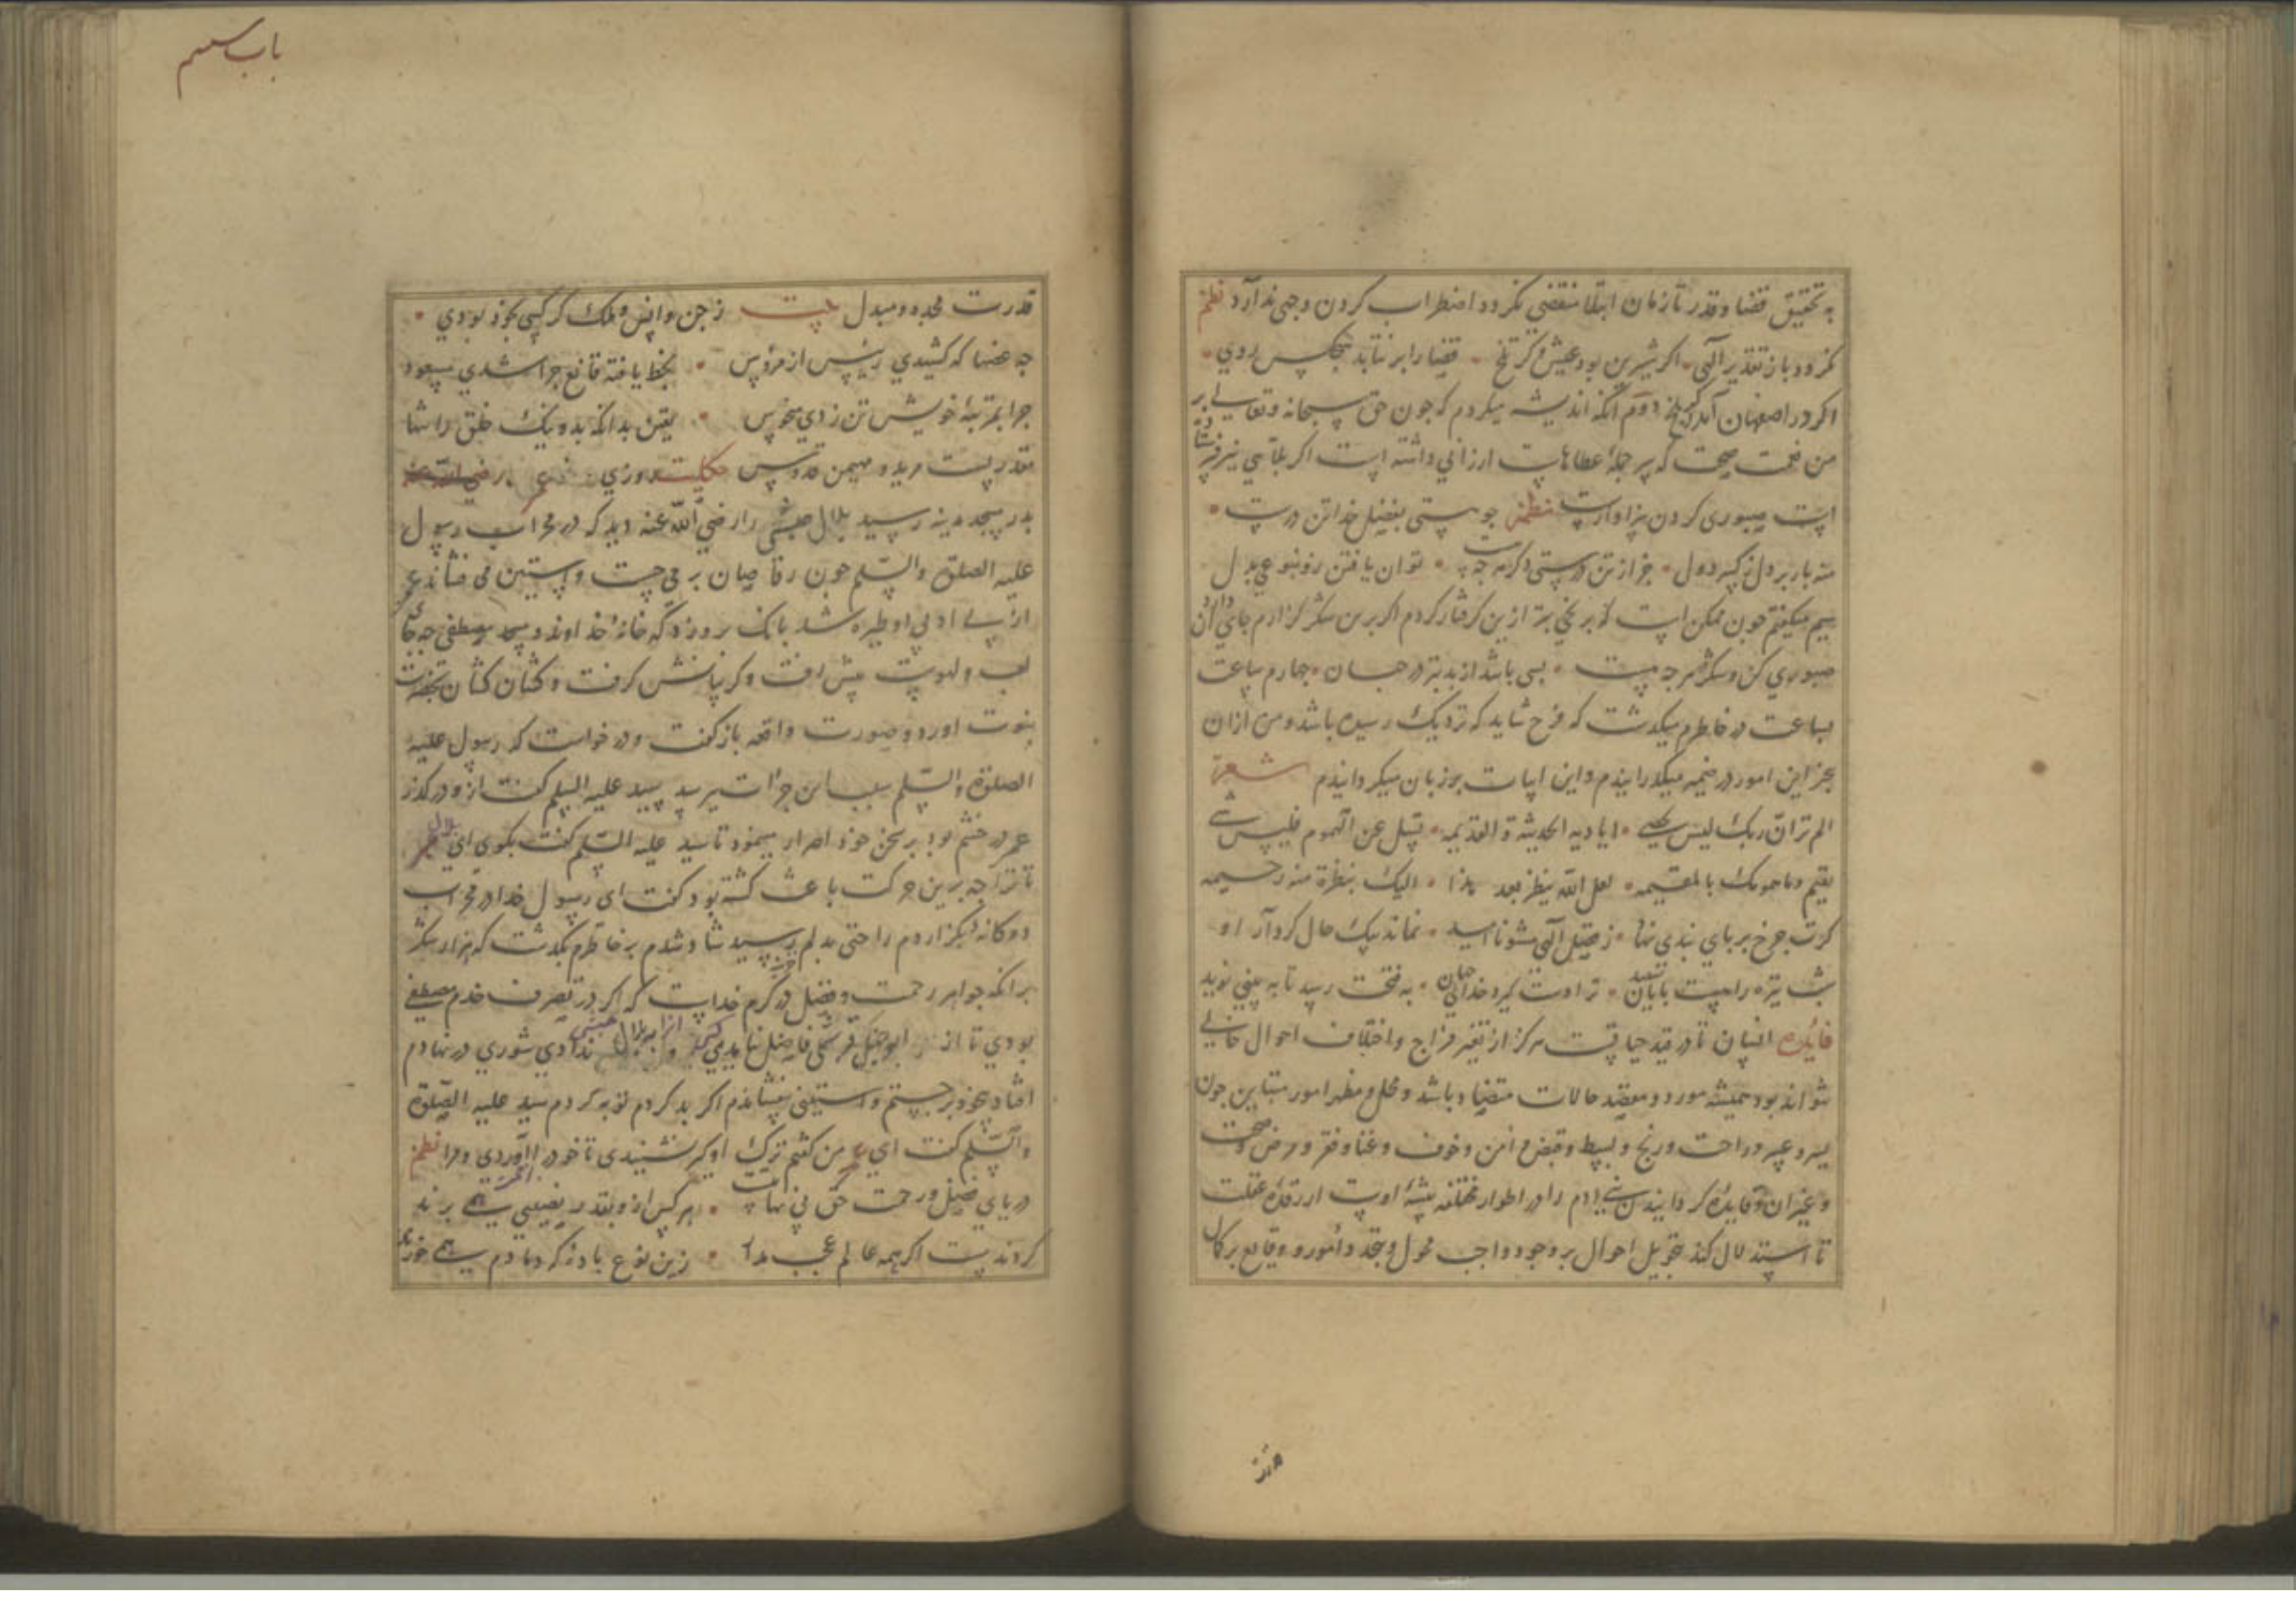 به تحقیق قضا و قدر تا زمان ابتلا منقضی نکردد اضطراب کردن وجهی ندارد نظم
نکردد باز تقدیر الهی اکر شیرین بود عیش و کر تلخ قضا را بر نتابد هیچکس روی
اکر در اصفهان آمد و کر بلخ دوم آنکه اندیشه میکردم که چون حق سبحانه و تعالی بر
من نعمت صحت که سر جملهٔ عطاهاست ارزانی داشته است اکر بلایی نیز فرستاد
است صبوری کردن سزاوارست نظم جو هستی بفضل خدا تن درست
منه بار بر دل ز کم دول جز از تن درستی دکر هر چه هست توان یافتن رو نبوعی بدل
سیم میکفتم چون ممکن است که بر نجی بتر ازین کرفتار کردم اکر برین شکر کزارم جای آن دارد
صبوری کن و شکر هر چه هست بسی باشد از بد بتر در جهان چهارم ساعت
بساعت در خاطرم میکذشت که فرح شاید که نزدیک رسیده باشد و من ازان
بجز این امور در ضمیر میکذرانیدم و این ابیات بر زبان میکردانیدم شعر
الم تر ان ربک لیس یحصی ایادیه الحدیثة والقدیمه تسل عن الهموم فلیس شی
یقیم وما همومک بالمقیمه لعل الله ینظر بعد هذا الیک بنظرة منه رحیمه
کرت چرخ بر پای بندی نهاد ز فضل الهی مشو ناامید نماند بیک حال کردار او
شب تیره راهست پایان سپید ترا دست کیرد خدای جهان به فتحت رسد تا به بینی نوید
فائده انسان تا در قید حیاتست هرکز از تغیر مزاج و اختلاف احوال خالی
نتواند بود همیشه مورد و مقصد حالات متضاد باشد و محل و مظهر امور متباین چون
یسر و عسر و راحت و رنج و بسط و قبض و امن و خوف و غنا و فقر و مرض و صحت
و غیر ان و فایده کردانیدن بنی ادم را در اطوار مختلفه تنبیه اوست از رقدهٔ غفلت
تا استدلال کند بتحویل احوال بر وجود واجب محول و بتجدد امور و وقایع بر کمال
قدرت
باب سیم
قدرت مجدد و مبدل بیت ز جن و انس و ملک کر کسی بخود بودی
چه غصها که کشیدی رئیس از مرؤس بخط یافته قانع چرا شدی مسعود
چرا بمرتبهٔ خویش تن زدی منحوس یقین بدانکه بد و نیک خلق را شها
مقدریست مرید و مهیمن قدوس حکایت روزی عمر رضی الله عنه
بدر مسجد مدینه رسید بلال حبشی را رضی الله عنه دید که در محراب رسول
علیه الصلوة والسلم چون رقاصان بر می جست و آستین می فشاند عمر
از بی ادبی او طیره شد بانک بر وزد که خانهٔ خداوند و مسجد مصطفی چه جای
لعب و لهوست پیش رفت و کریبانش کرفت و کشان کشان بحضرت
نبوت اورد و صورت واقعه باز کفت و در خواست که رسول علیه
الصلوة والسلم سبب این جرات بپرسد سید علیه السلم کفت ازو درکذر
عمر در خشم بود بر سخن خود اصرار مینمود تا سید علیه السلم کفت بکوی ای بلال
تا ترا چه برین حرکت باعث کشته بود کفت ای رسول خدا در محراب
دوکانه بکزاردم راحتی بدلم رسید شاد شدم بر خاطرم بکذشت که هزار شکر
برانکه جواهر رحمت و فضل در کرم خداست که اکر در تصرف خدم مصطفی
بودی تا از ابوجهل قرشی فاضل نیامدی کسی ازان به بلال حبشی ندادی شوری در نهادم
افتاد بی خود برجستم و آستینی بفشاندم اکر بد کردم توبه کردم سید علیه الصلوة
والسلم کفت ای عمر من کفتم ترک او کیر نشنیدی تا خود را آوردی و مرا نظم
دریای فضل و رحمت حق بی نهایتست هر کس ازو بقدر نصیبی همی برند
کردند مست اکر همه عالم عجب مدار زین نوع باده کر دمادم همی خورند